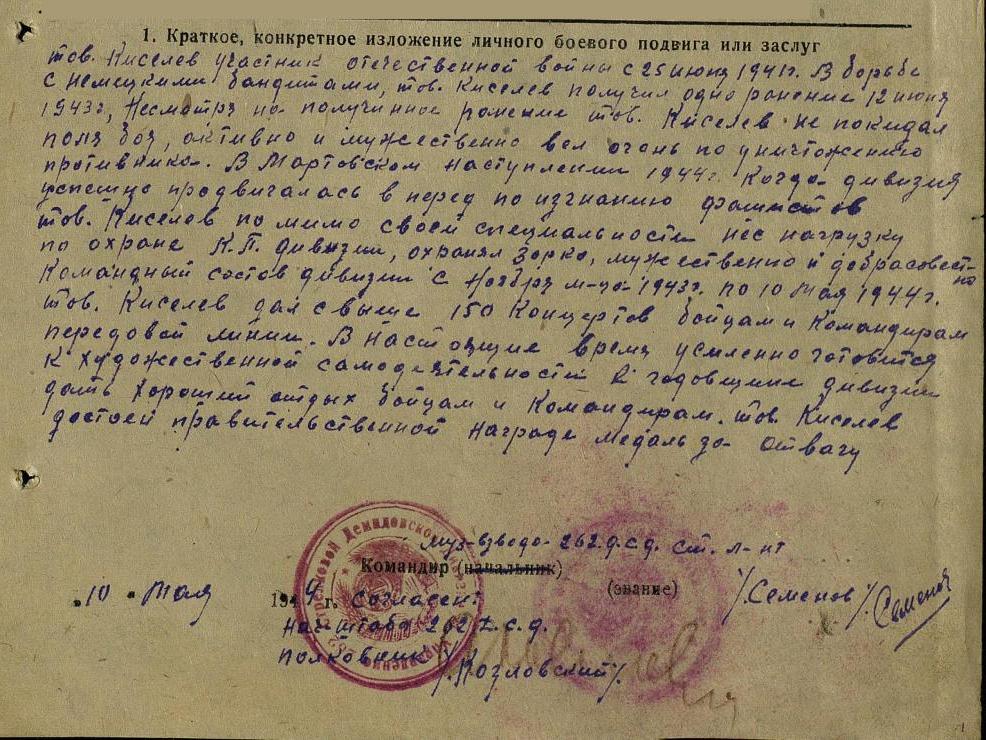 1. Краткое, конкретное изложение личного боевого подвига или заслуг
тов. Киселев участник отечественной войны с 25 июня 1941г. В борьбе
с немецкими бандитами, тов. Киселев получил одно ранение 12 июня
1943г, Несмотря на полученное ранение тов. Киселев не покидал
поля боя, активно и мужественно вел огонь по уничтожению
противника. В Мартовском наступлении 1944г. Когда дивизия
успешно продвигалась в перед по изгнанию фашистов
тов. Киселев по мимо своей специальности нёс нагрузку
по охране К.П. дивизии, охранял зорко, мужественно и добрасовестно
Командный состав дивизии С Ноября м-ца 1943г. по 10 Мая 1944г.
тов. Киселев дал свыше 150 Концертов бойцам и Командирам
передовой линии. В настоящие время усиленно готовится
к художественной самодеятельности к годовщине дивизии
дать хороший отдых бойцам и Командирам. тов. Киселев
достоен правительственной награде медаль за отвагу
Муз-взвода 262.д.с.д. ст. л-нт
Командир (начальник)
(звание)
/.Семенов/. Семенов
„10„ Мая 1944 г. Согласен:
Нач штаба 262 д.с.д.
полковник /.Козловский/.